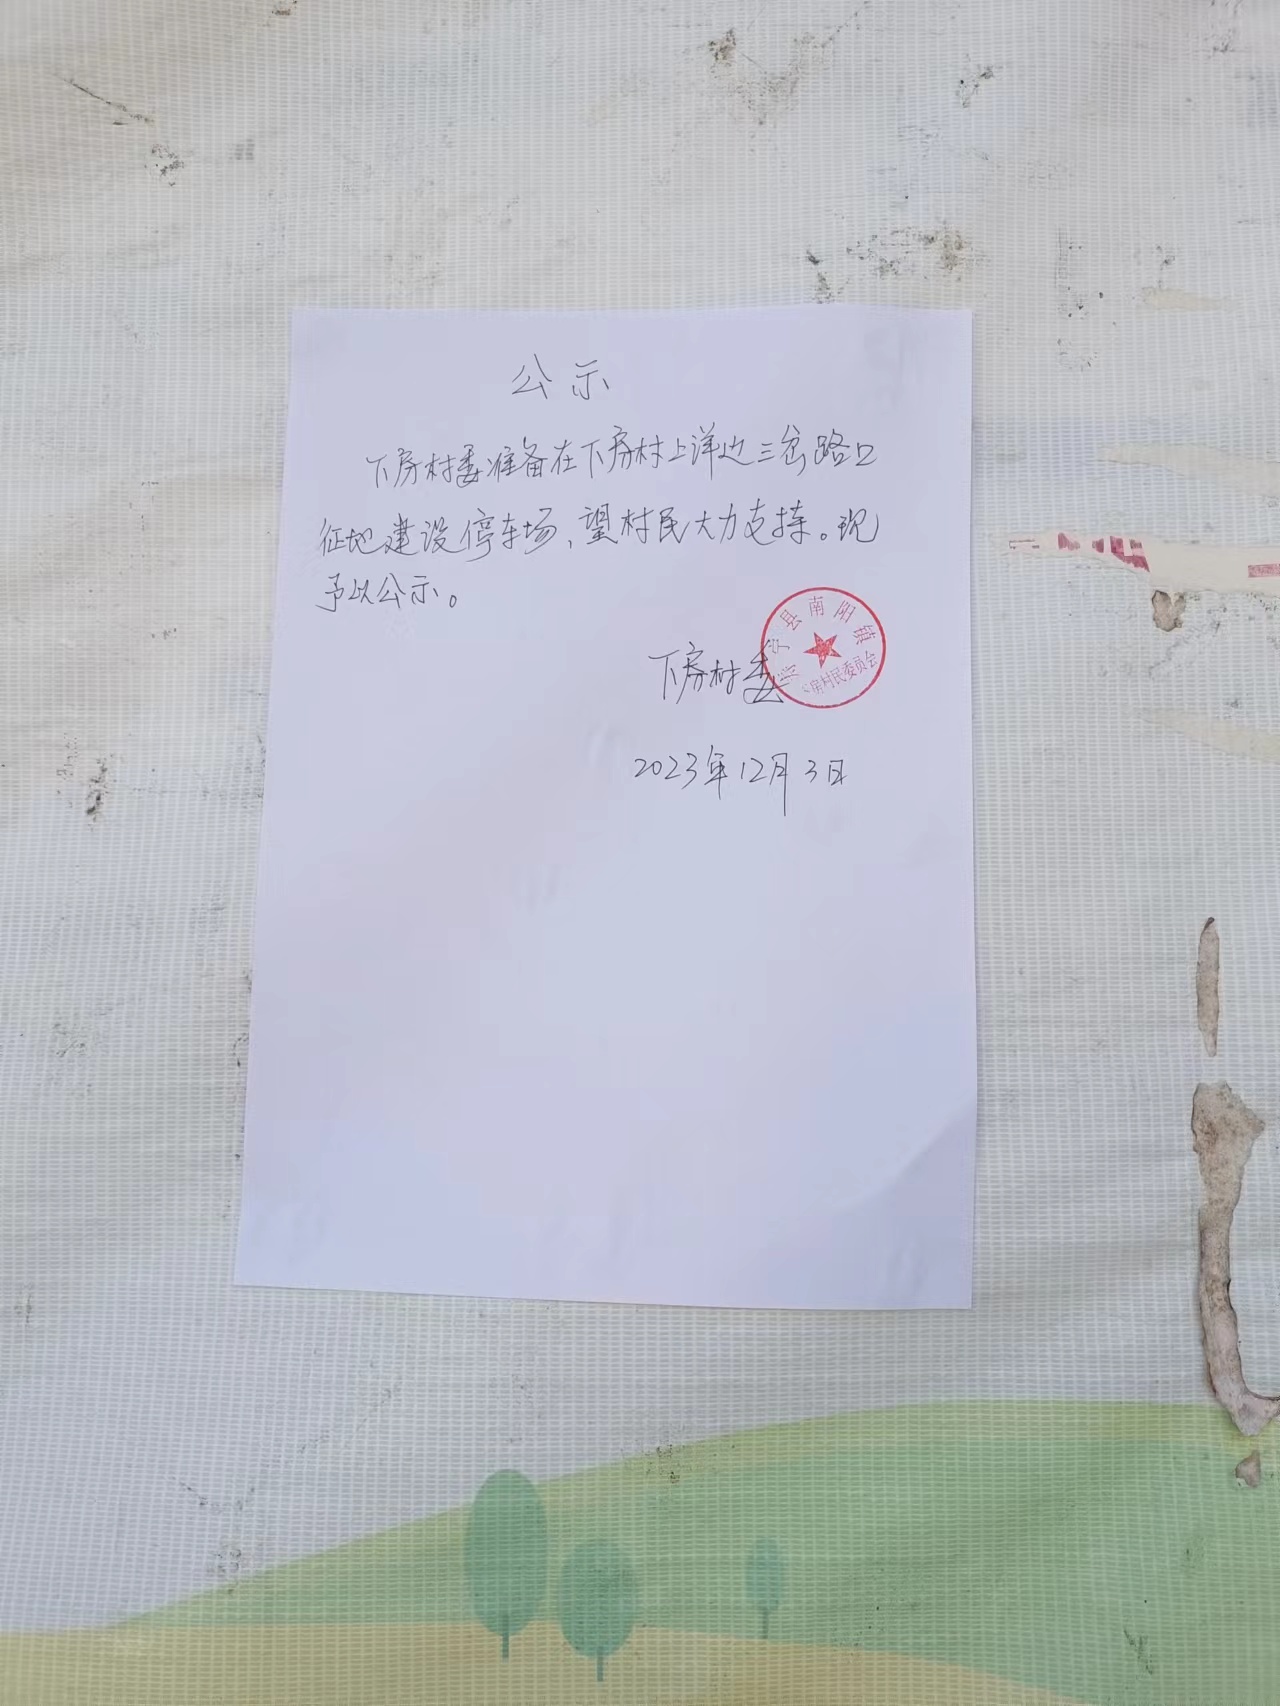 公示
下房村委准备在下房村上洋边三岔路口
征地建设停车场,望村民大力支持。现
予以公示。
宁县南阳镇
房村民委员会
下房村委
2023年12月3日